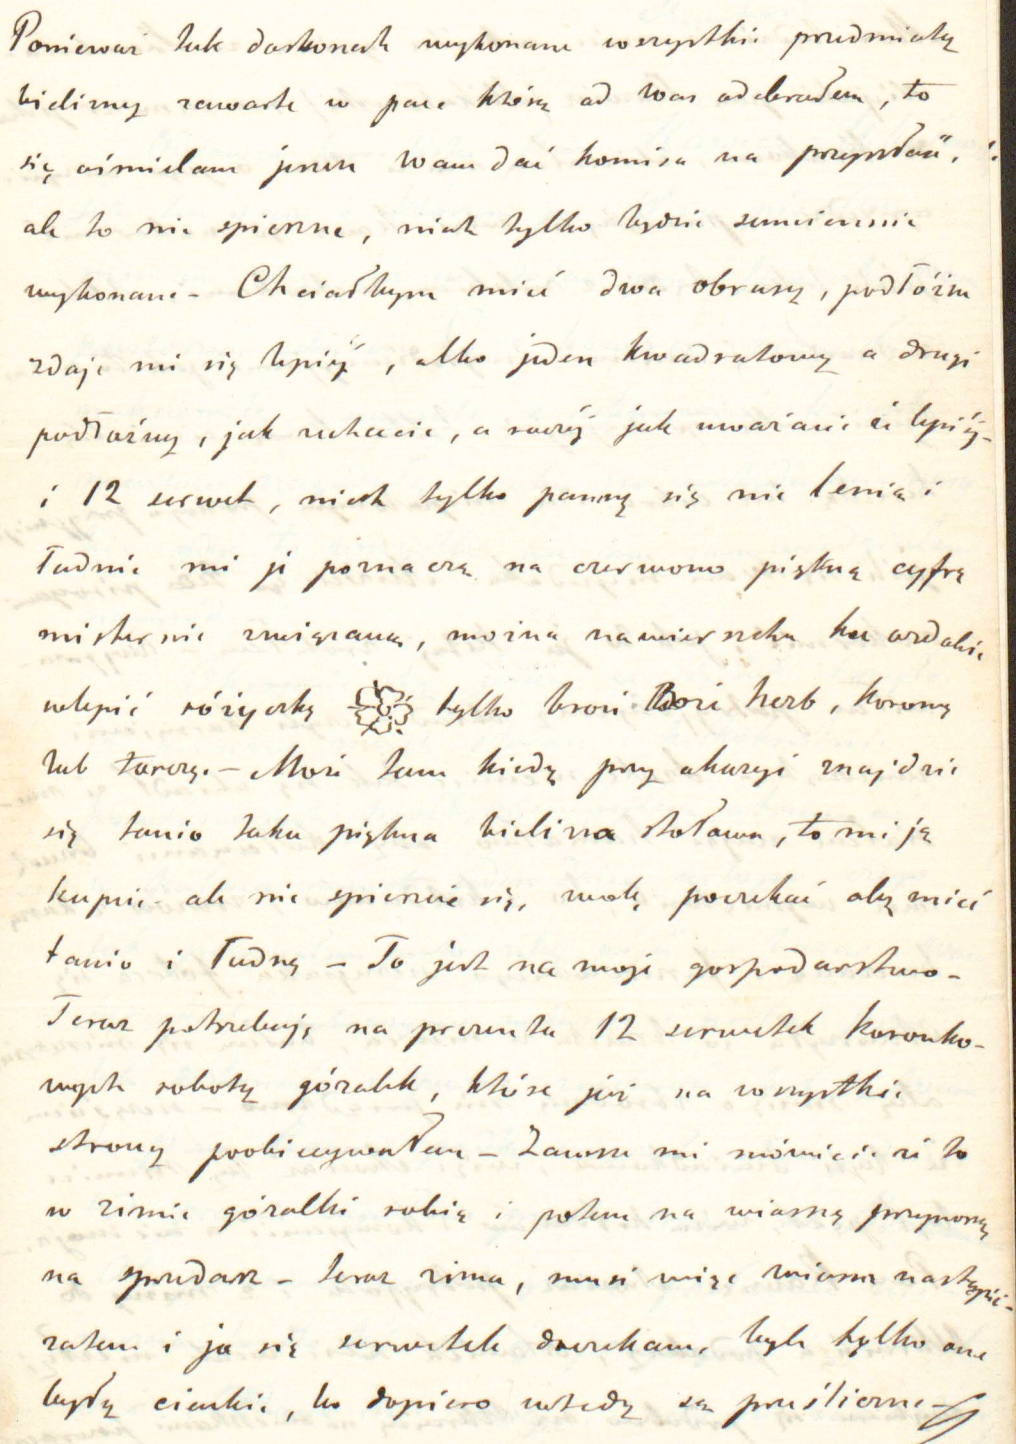 Ponieważ tak doskonale wykonane wszystkie przedmioty
bielizny zawarte w pace którą od Was odebrałem, to
się ośmielam jeszcze Wam dać komisa na przyszłość.
ale to nie spieszne, niech tylko będzie sumiennie
wykonane – Chciałbym mieć dwa obrusy, podłóżne
zdaje mi się lepiéj, albo jeden kwadratowy a drugi
podłużny, jak zechcecie, a raczéj jak uważacie że lepiéj –
i 12 serwet, niech tylko panny się nie lenią i
ładnie mi je poznaczą na czerwono piękną cyfrą
misternie związaną, można na wierzchu ku ozdobie
wlepić różyczkę tylko broń Boże herb, koronę
lub tarczę. – Może tam kiedy przy okazyi znajdzie
się tanio taka piękna bielizna stołowa, to mi ją
kupcie ale nie spieszcie się, wolę poczekać aby mieć
tanio i ładną – To jest na moje gospodarstwo –
Teraz potrzebuję na prezenta 12 serwetek koronko-
wych roboty góralek, które już na wszystkie
strony poobiecywałem – Zawsze mi mówicie że to
w zimie góralki robią i potem na wiosnę przynoszą
na sprzedarz – teraz zima, musi więc wiosna nastąpić –
zatem i ja się serwetek doczekam, byle tylko one
były cienkie, bo dopiero wtedy są prześliczne –